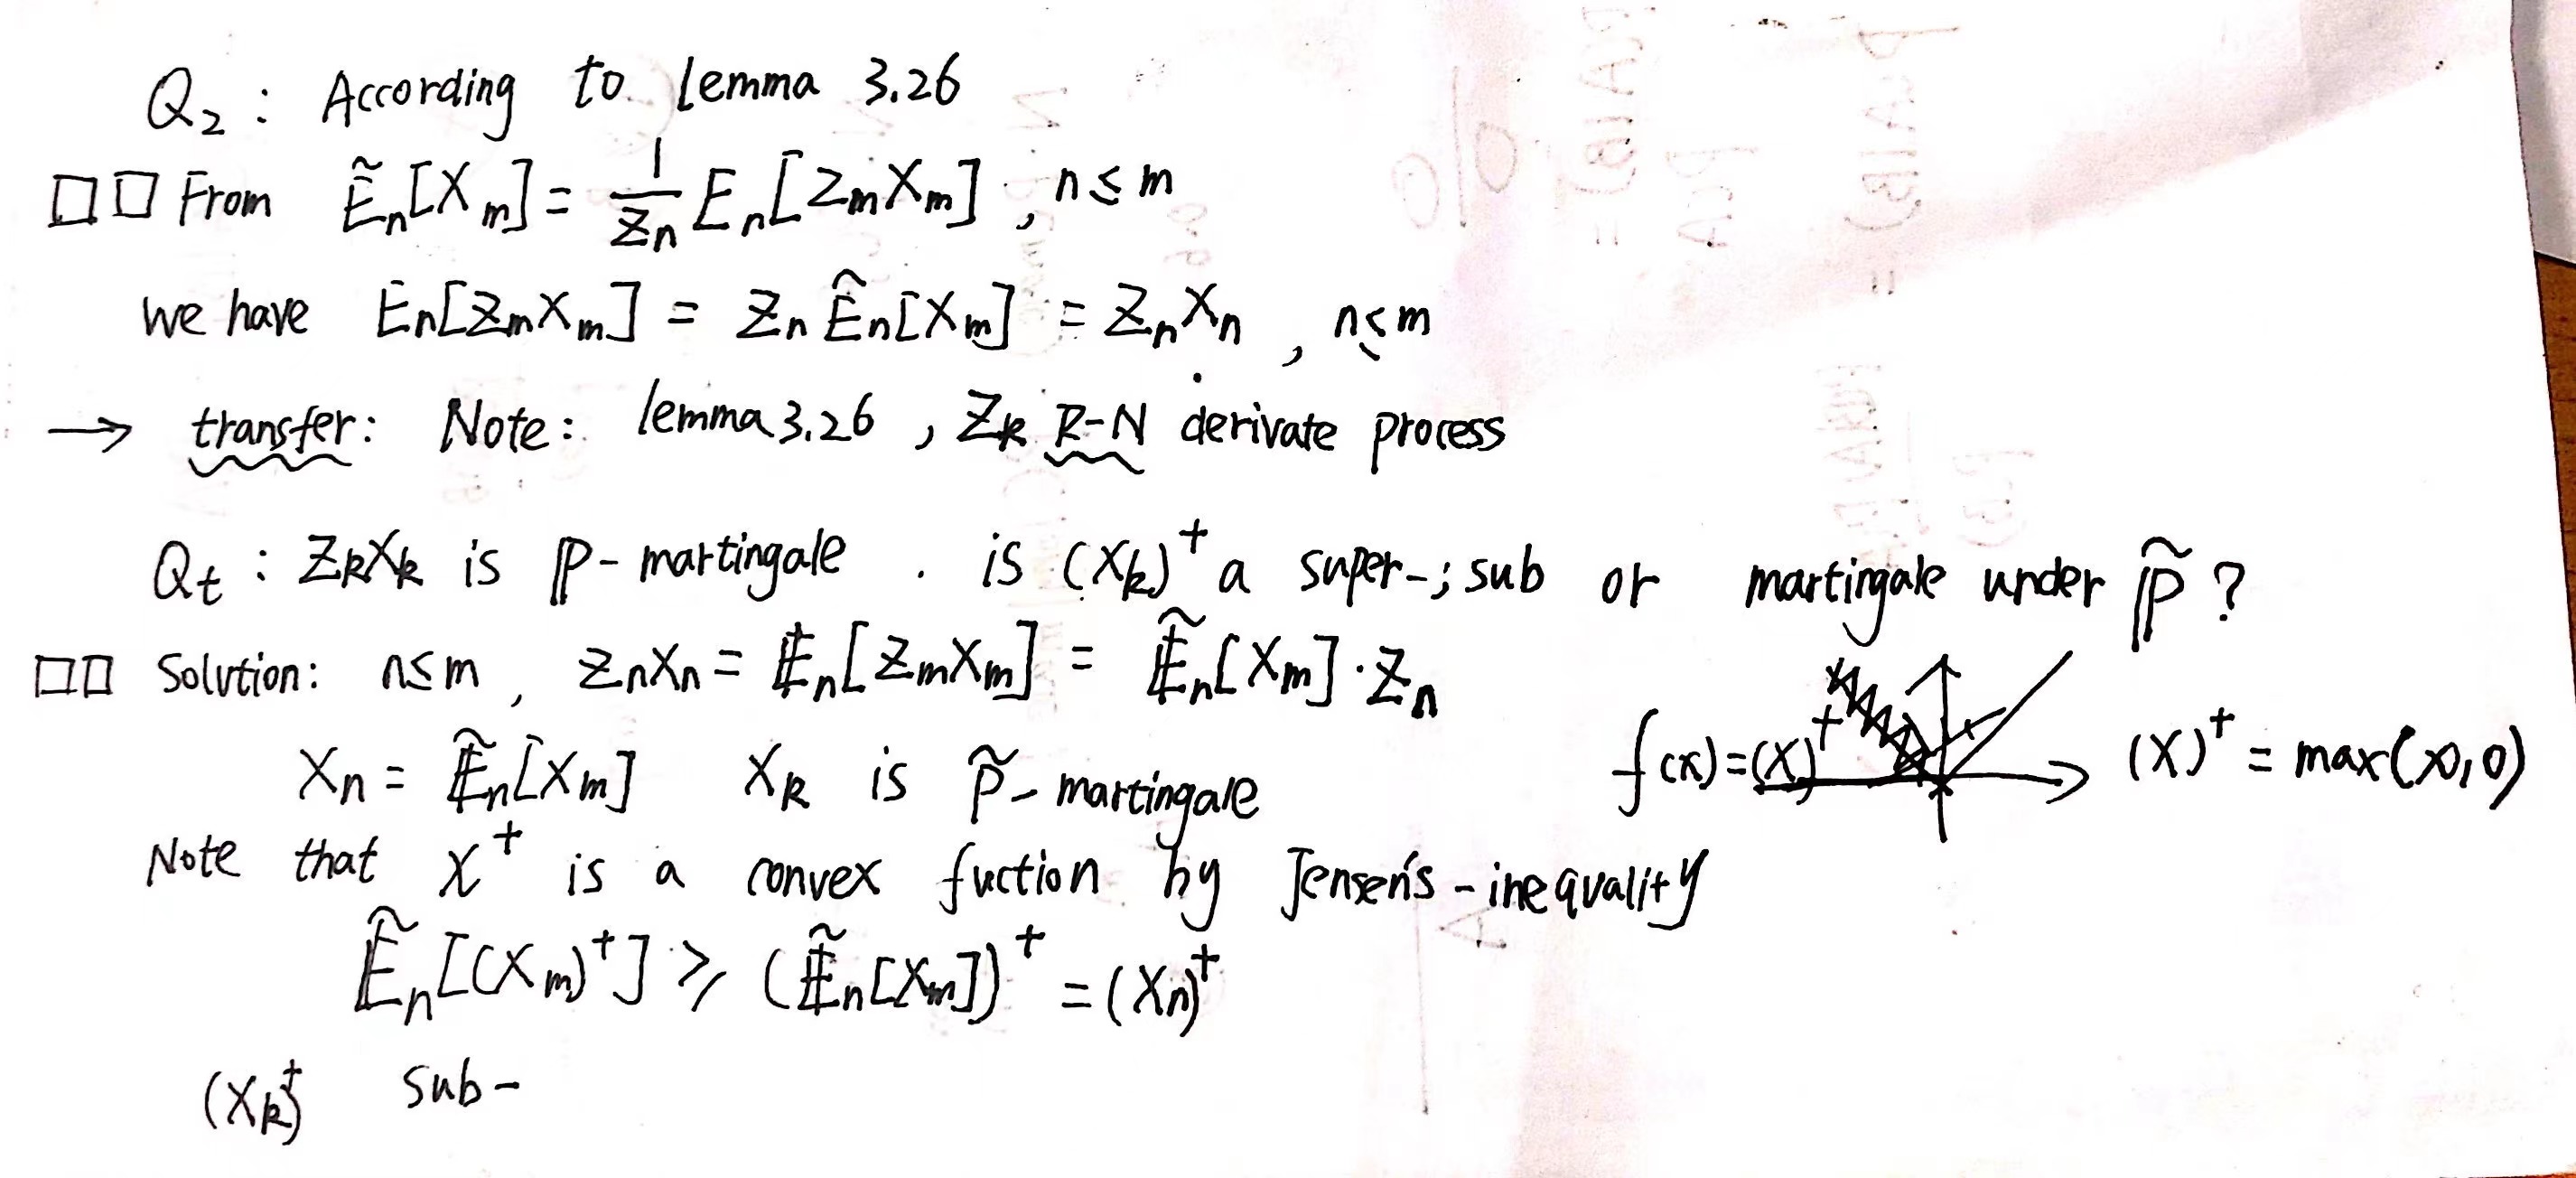 Q₂ : According to lemma 3.26
□□ From Ẽₙ[Xₘ] = 1/Zₙ Eₙ[ZₘXₘ] , n ≤ m
We have Eₙ[ZₘXₘ] = Zₙ Êₙ[Xₘ] = ZₙXₙ , n ≤ m
→ transfer: Note: lemma 3.26 , Zₖ R-N derivate process
Qt : ZₖXₖ is ℙ-martingale . is (Xₖ)⁺ a super-; sub or martingale under ℙ̃ ?
□□ Solution: n≤m , ZₙXₙ = 𝔼ₙ[ZₘXₘ] = 𝔼̃ₙ[Xₘ]·Zₙ
Xₙ = 𝔼̃ₙ[Xₘ] Xₖ is P̃-martingale
f(x)=(X)⁺ (X)⁺ = max(x,0)
Note that X⁺ is a convex fuction by Jensen's-inequality
𝔼̃ₙ[(Xₘ)⁺] ≥ (𝔼̃ₙ[Xₘ])⁺ = (Xₙ)⁺
(Xₖ)⁺ sub-